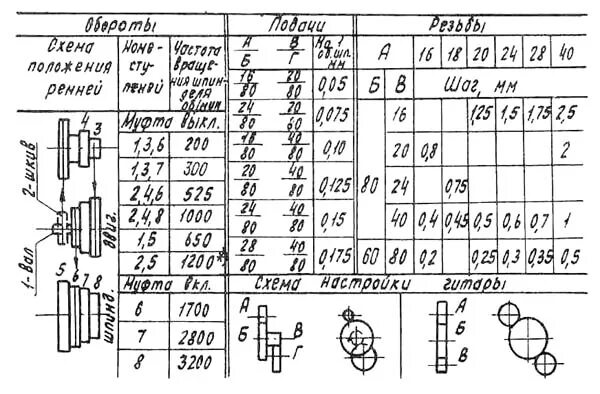 Обороты
Схема положения ремней
Номе- ступеней
Частота вращения шпинделя об/мин
Муфта выкл.
1,3,6 200
1,3,7 300
2,4,6 525
2,4,8 1000
1,5 650
2,5 1200*)
Муфта вкл.
6 1700
7 2800
8 3200
4
3
2-шкив
1-вал
двиг.
5 6 7 8
шпинд.
Подачи
А/Б В/Г На 1 об.шп. мм
16/80 20/80 0,05
24/80 20/60 0,075
18/80 40/80 0,10
20/80 40/80 0,125
24/80 40/80 0,15
28/80 40/80 0,175
Резьбы
А 16 18 20 24 28 40
Б В Шаг, мм
16 1,25 1,5 1,75 2,5
20 0,8 2
80 24 0,75
40 0,4 0,45 0,5 0,6 0,7 1
60 80 0,2 0,25 0,3 0,35 0,5
Схема настройки гитары
А
Б В
Г
А
Б
В